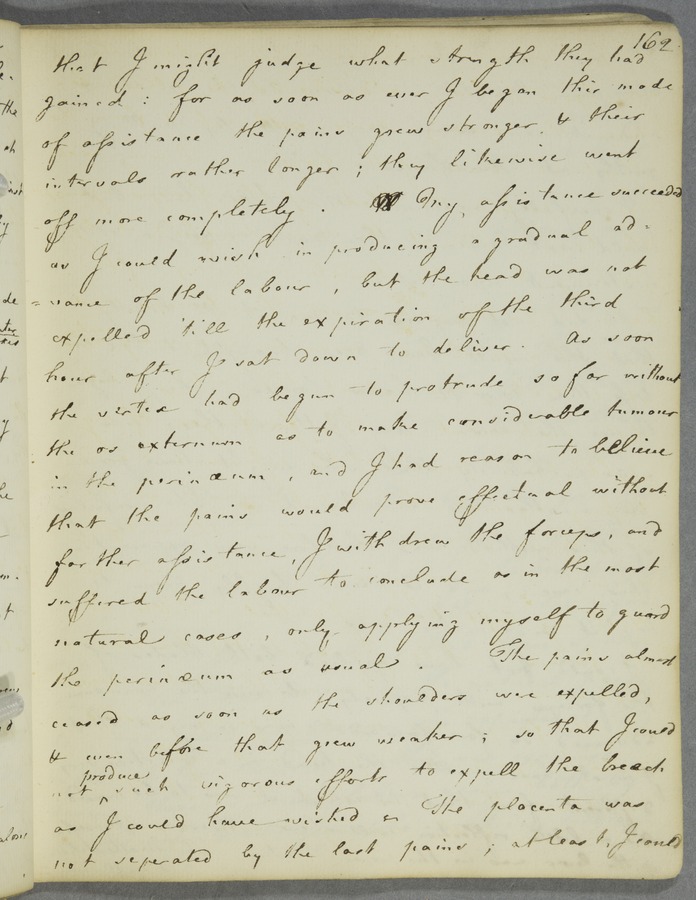 162
that I might judge what strength they had
gained : for as soon as ever I began this mode
of assistance the pains grew stronger, & their
intervals rather longer ; they likewise went
off more completely . My assistance succeeded
as I could wish in producing a gradual ad=
=vance of the labour , but the head was not
expelled 'till the expiration of the third
hour after I sat down to deliver . As soon
the vertex had begun to protrude so far without
the os externum as to make considerable tumour
in the perinæum , and I had reason to believe
that the pains would prove effectual without
farther assistance, I withdrew the forceps, and
suffered the labour to conclude as in the most
natural cases , only applying myself to guard
the perinæum as usual . The pains almost
ceased as soon as the shoulders were expelled,
& even before that grew weaker ; so that I coud
produce
not ^ such vigorous efforts to expell the breach
as I could have wished The placenta was
not seperated by the last pains ; at least, I could